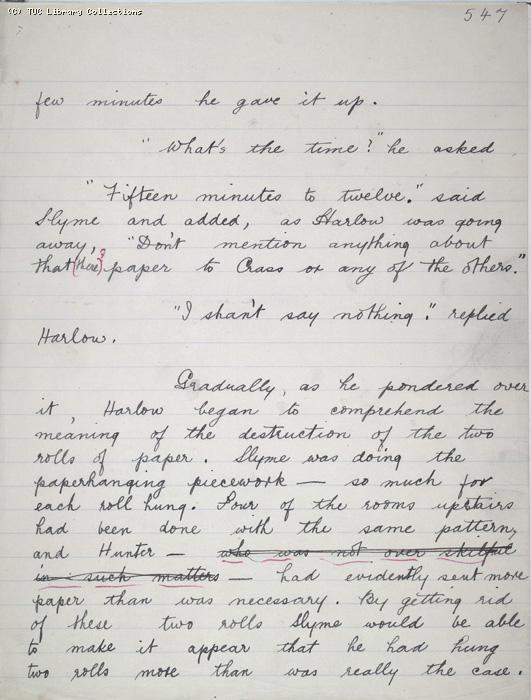 (C) TUC Library Collections
547
few minutes he gave it up.
"What's the time?" he asked
"Fifteen minutes to twelve." said
Slyme and added, as Harlow was going
away, "Don't mention anything about
that (there)? paper to Crass or any of the others."
"I shan't say nothing". replied
Harlow.
Gradually, as he pondered over
it, Harlow began to comprehend the
meaning of the destruction of the two
rolls of paper. Slyme was doing the
paperhanging piecework — so much for
each roll hung. Four of the rooms upstairs
had been done with the same pattern,
and Hunter — who was not over skilful
in such matters — had evidently sent more
paper than was necessary. By getting rid
of these two rolls Slyme would be able
to make it appear that he had hung
two rolls more than was really the case.